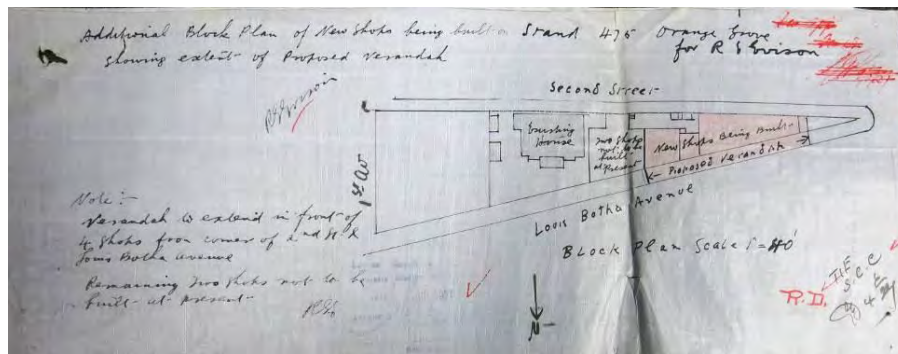 Additional Block Plan of New Shops being built on Stand 475 Orange Grove
showing extent of Proposed Verandah
for R S Evison
Second Street
1st Av
Existing
House
Two Shops
not to be
built
at Present
New Shops Being Built
Proposed Verandah
Louis Botha Avenue
Block Plan Scale 1"=40'
Note:-
Verandah to extend in front of
4 Shops from corner of 2nd St &
Louis Botha Avenue
Remaining Two Shops not to be
built at present
R.D.
N